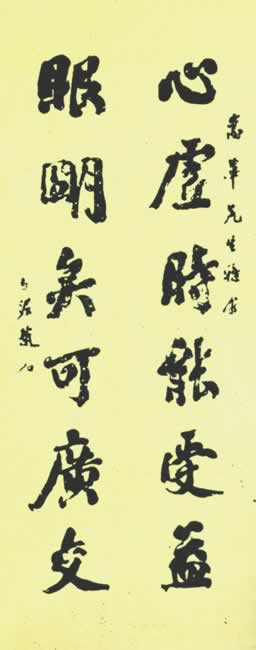 華先生雅屬
心虛時能受益
眼明矣可廣交